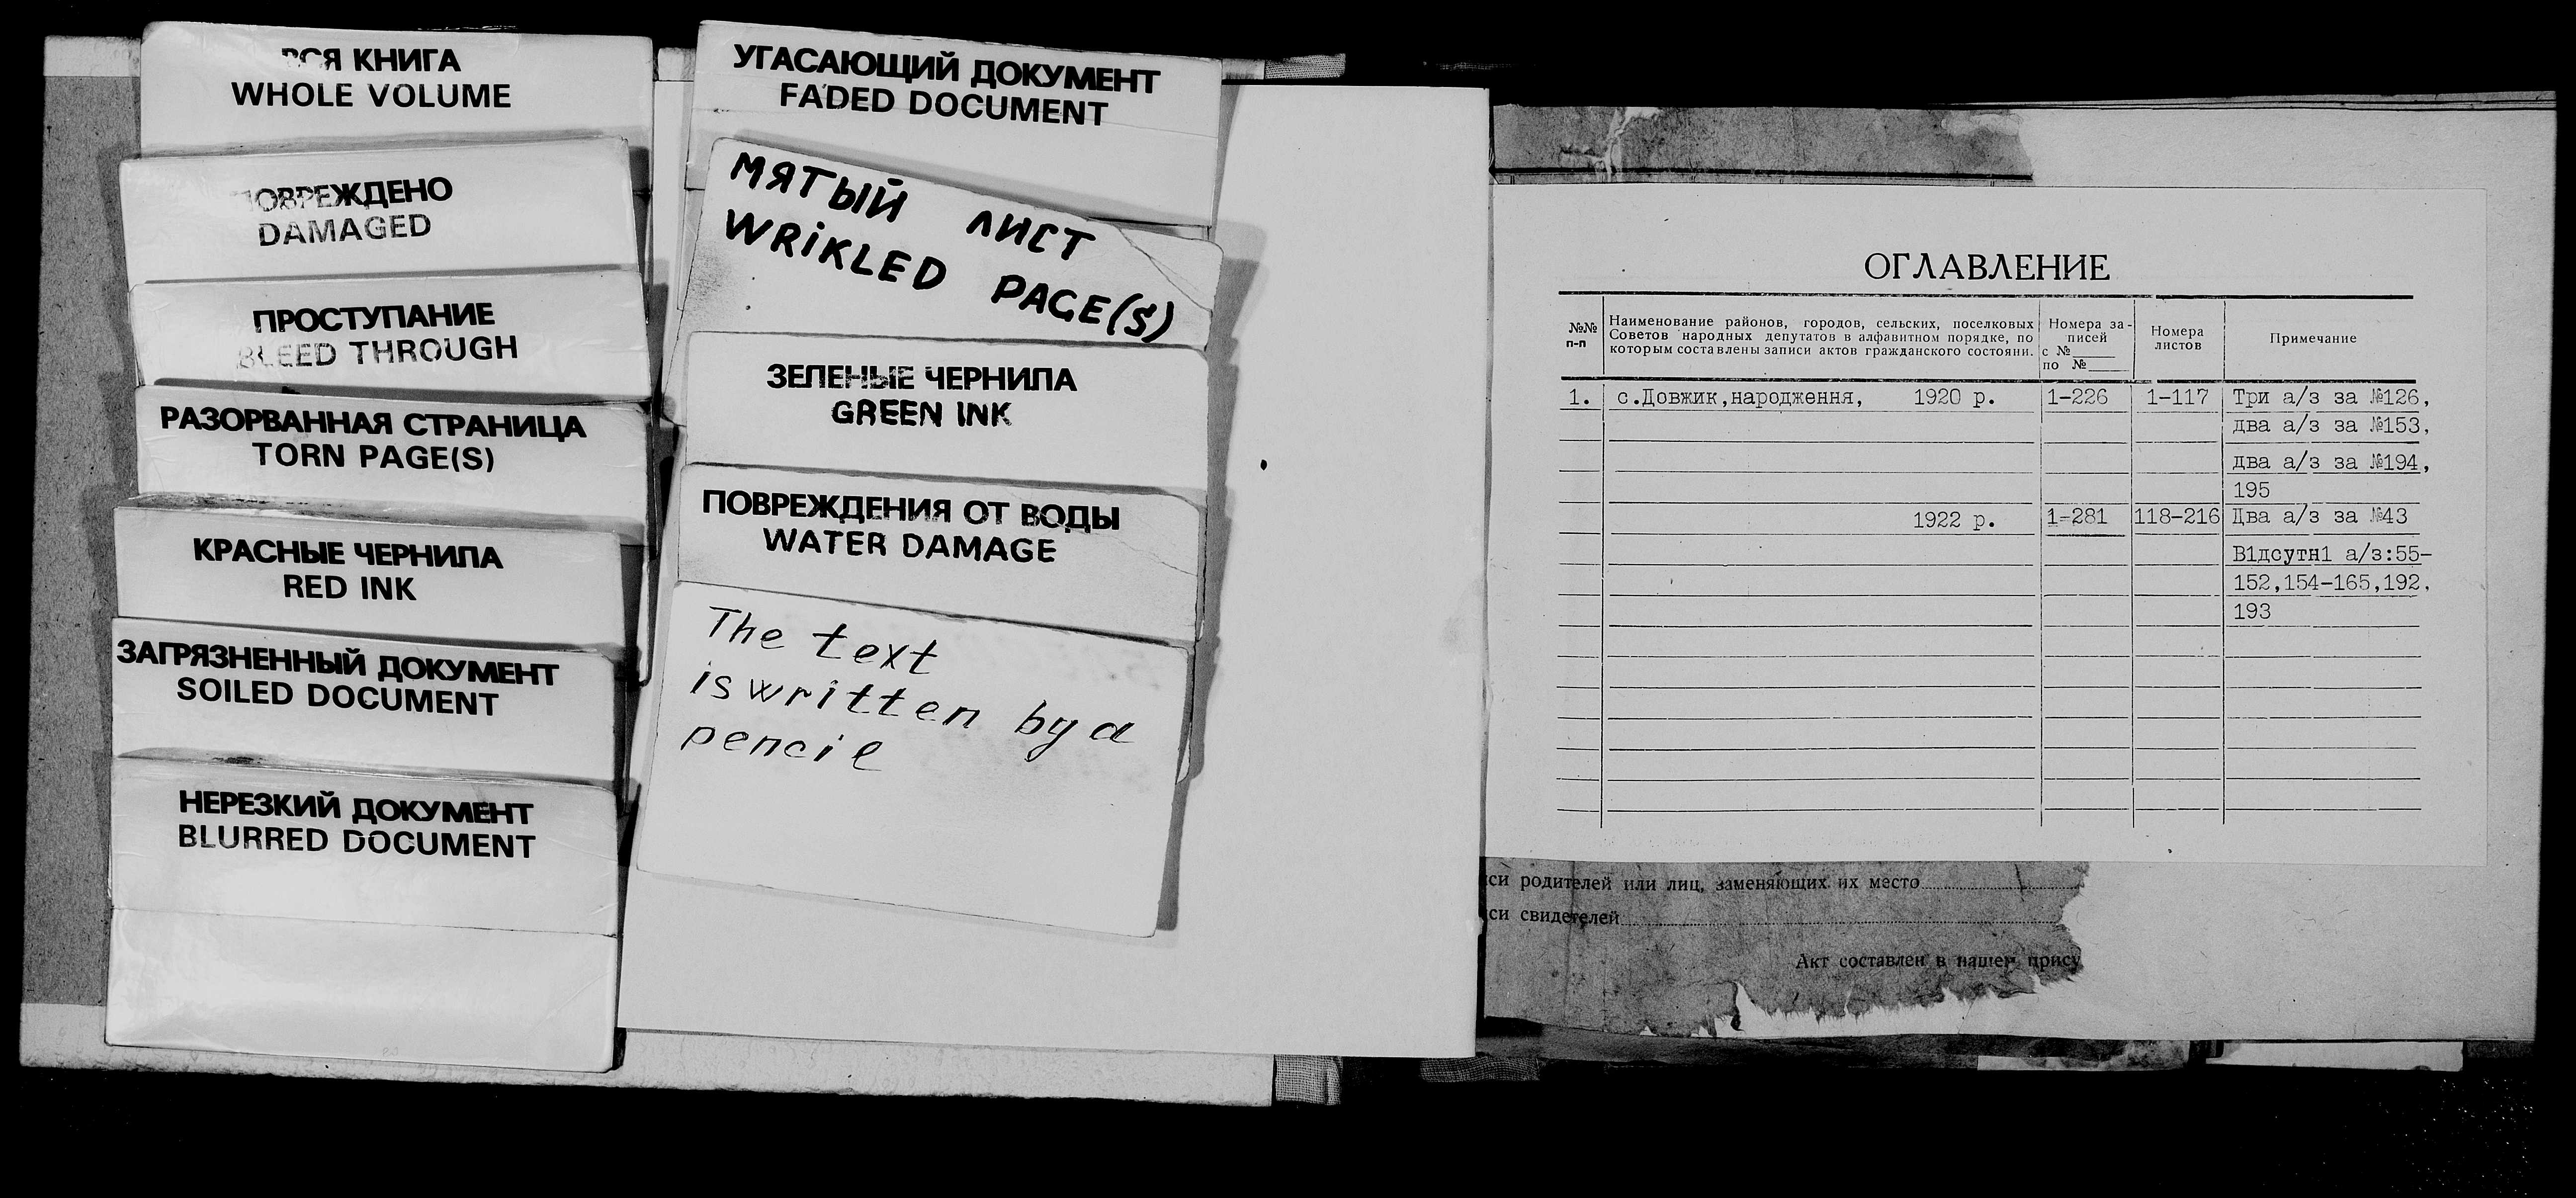 ВСЯ КНИГА
WHOLE VOLUME
ПОВРЕЖДЕНО
DAMAGED
ПРОСТУПАНИЕ
BLEED THROUGH
РАЗОРВАННАЯ СТРАНИЦА
TORN PAGE(S)
КРАСНЫЕ ЧЕРНИЛА
RED INK
ЗАГРЯЗНЕННЫЙ ДОКУМЕНТ
SOILED DOCUMENT
НЕРЕЗКИЙ ДОКУМЕНТ
BLURRED DOCUMENT
УГАСАЮЩИЙ ДОКУМЕНТ
FADED DOCUMENT
МЯТЫЙ ЛИСТ
WRiKLED PAGE(S)
ЗЕЛЕНЫЕ ЧЕРНИЛА
GREEN INK
ПОВРЕЖДЕНИЯ ОТ ВОДЫ
WATER DAMAGE
The text
is written by a
pencil
ОГЛАВЛЕНИЕ
№№ п-п
Наименование районов, городов, сельских, поселковых
Советов народных депутатов в алфавитном порядке, по
которым составлены записи актов гражданского состояни.
Номера за-
писей
с №
по №
Номера
листов
Примечание
1. с.Довжик,народження, 1920 р. 1-226 1-117 Три а/з за №126,
два а/з за №153,
два а/з за №194,
195
1922 р. 1-281 118-216 Два а/з за №43
В1дсутн1 а/з:55-
152,154-165,192,
193
си родителей или лиц, заменяющих их место
си свидетелей
Акт составлен в нашем прису